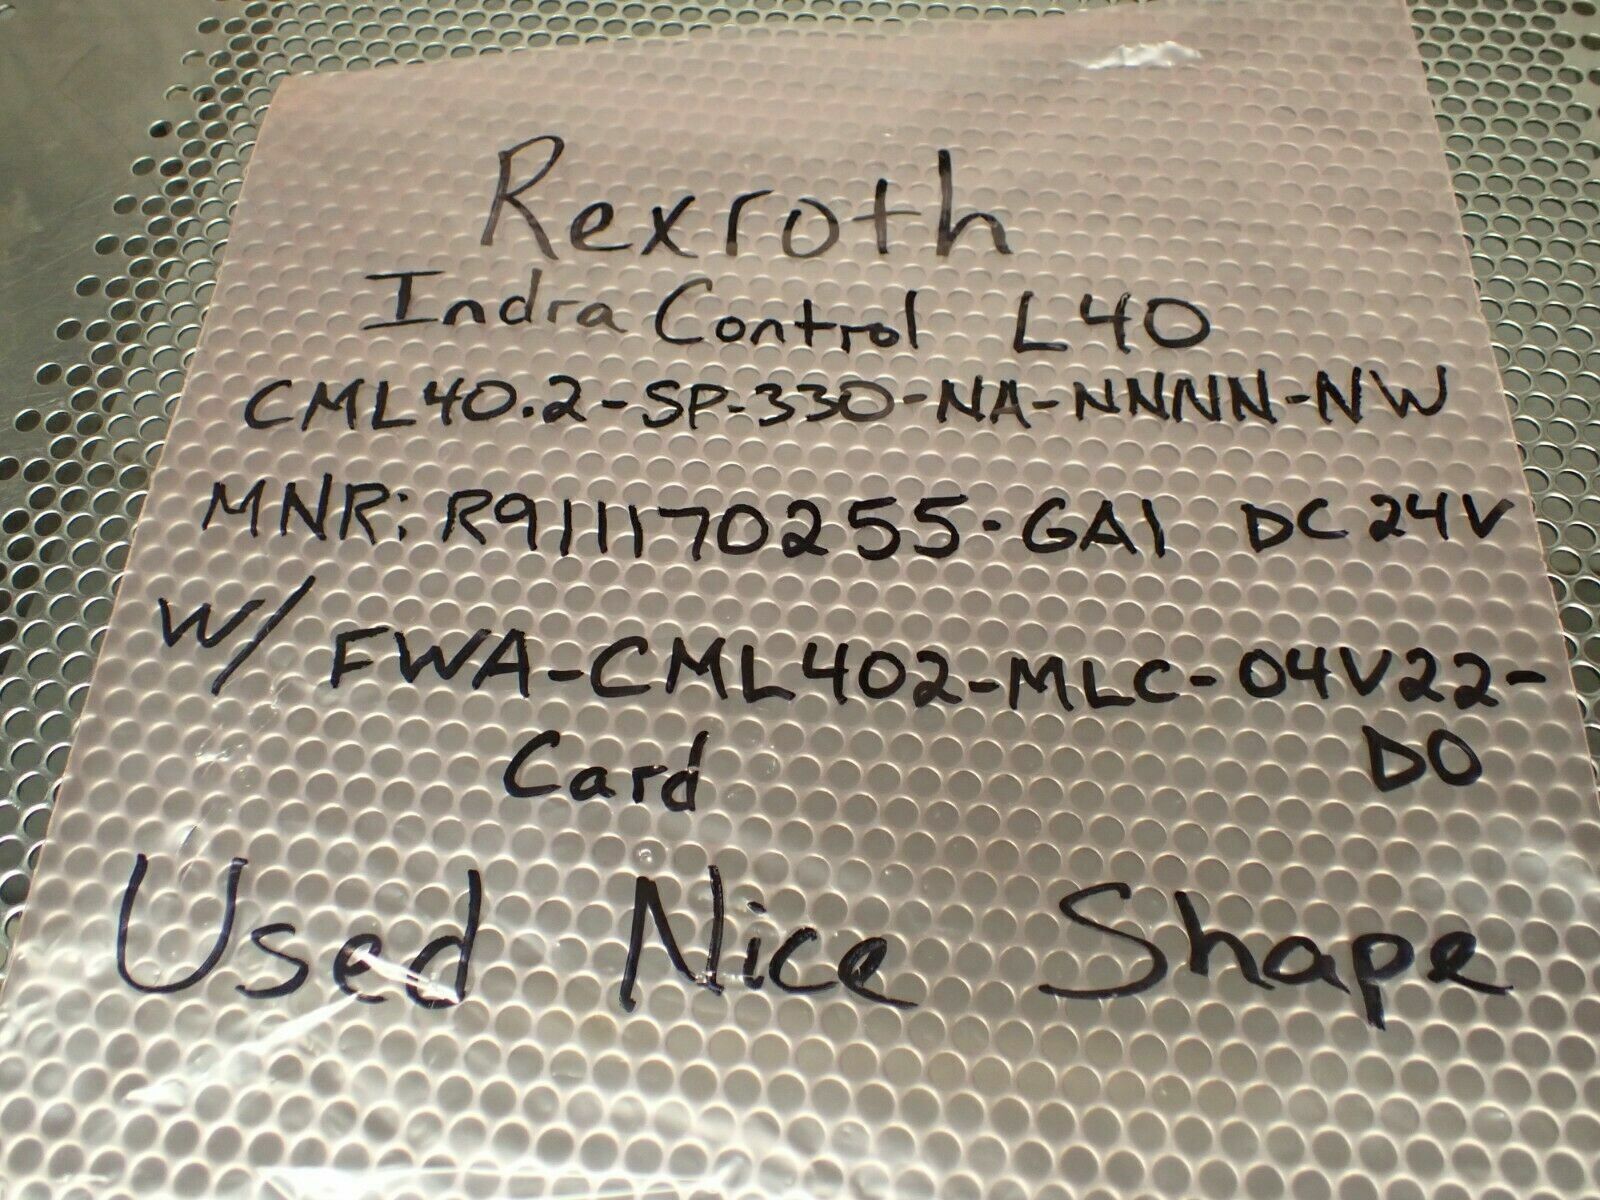 Rexroth
Indra Control L40
CML40.2-SP-330-NA-NNNN-NW
MNR: R911170255-GA1 DC 24V
W/ FWA-CML402-MLC-04V22-
Card D0
Used Nice Shape